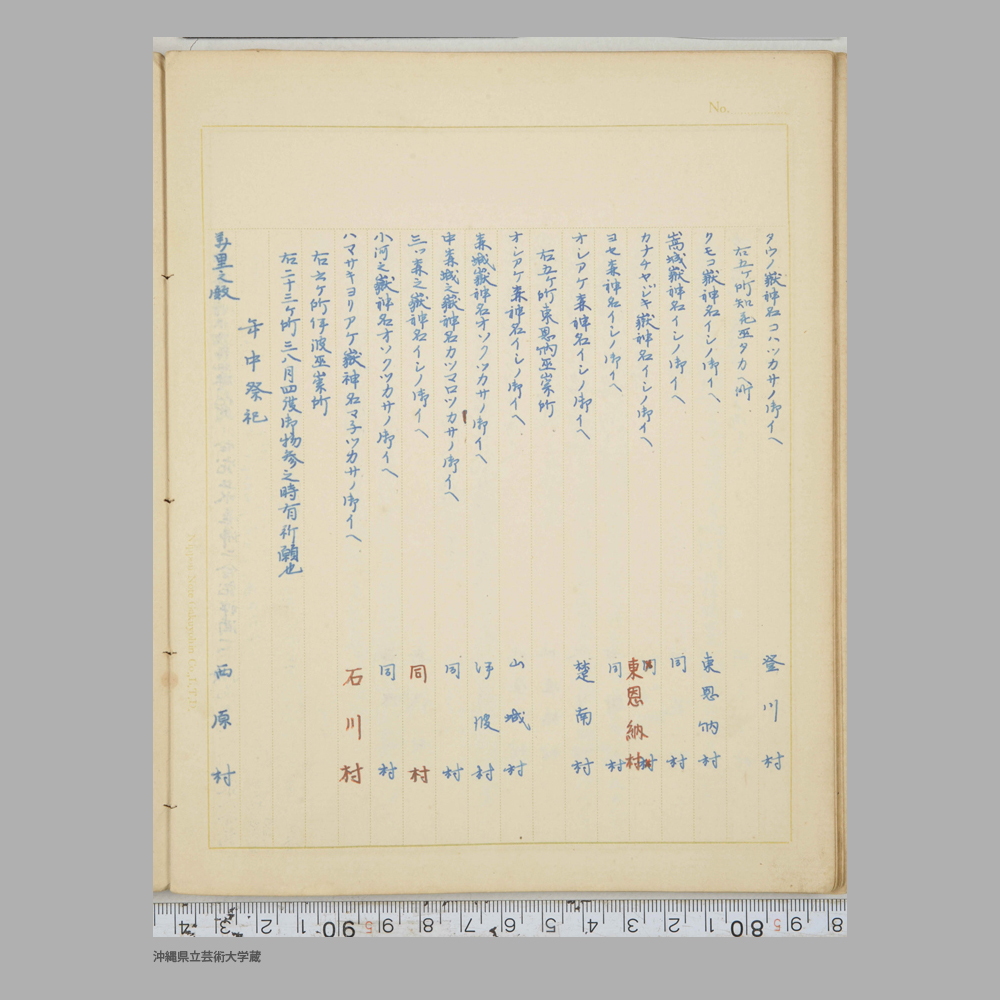 No.
タウノ嶽神名コハツカサノ御イベ 登川村
右五ヶ所知花巫タカベ所
クモコ嶽神名イシノ御イベ 東恩納村
嵩城嶽神名イシノ御イベ 同村
カナケヤジキ嶽神名イシノ御イベ 同村 東恩納村
ヨセ森神名イシノ御イベ 同村
オシアゲ森神名イシノ御イベ 楚南村
右五ヶ所東恩納巫崇所
オシアゲ森神名イシノ御イベ 山城村
森城嶽神名オソクツカサノ御イベ 伊波村
中森城之嶽神名カツマロツカサノ御イベ 同村
三ツ森之嶽神名イシノ御イベ 同村
小河之嶽神名オソクツカサノ御イベ 同村
ハマサキヨリアゲ嶽神名マネツカサノ御イベ 石川村
右六ヶ所伊波巫崇所
右二十三ヶ所三八月四度御物参之時有祈願也
年中祭祀
西原村
沖縄県立芸術大学蔵